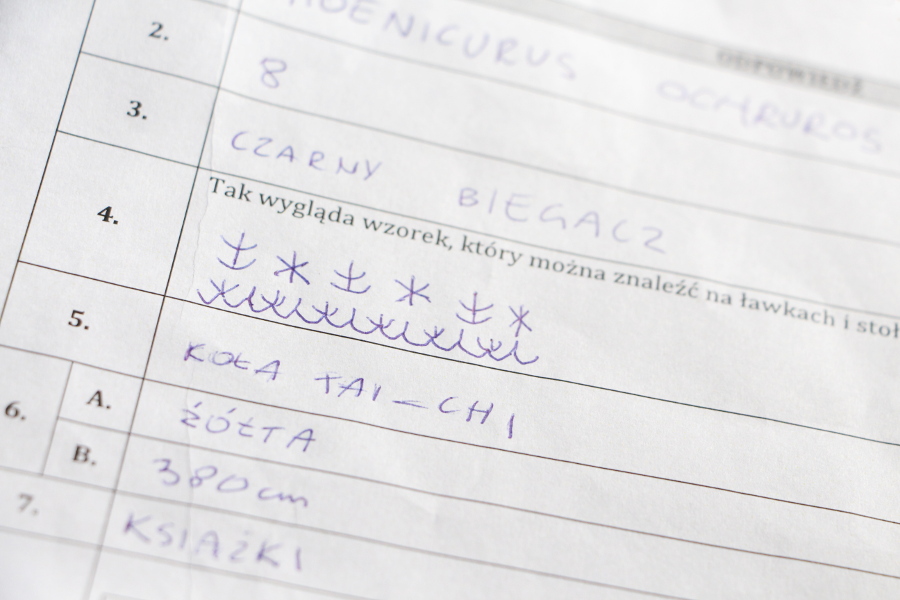 HOENICURUS OCHRUROS
2. 8
3. CZARNY BIEGACZ
4. Tak wygląda wzorek, który można znaleźć na ławkach i stoł
5. KOŁA TAI-CHI
6. A. ŻÓŁTA
B. 380cm
7. KSIĄŻKI